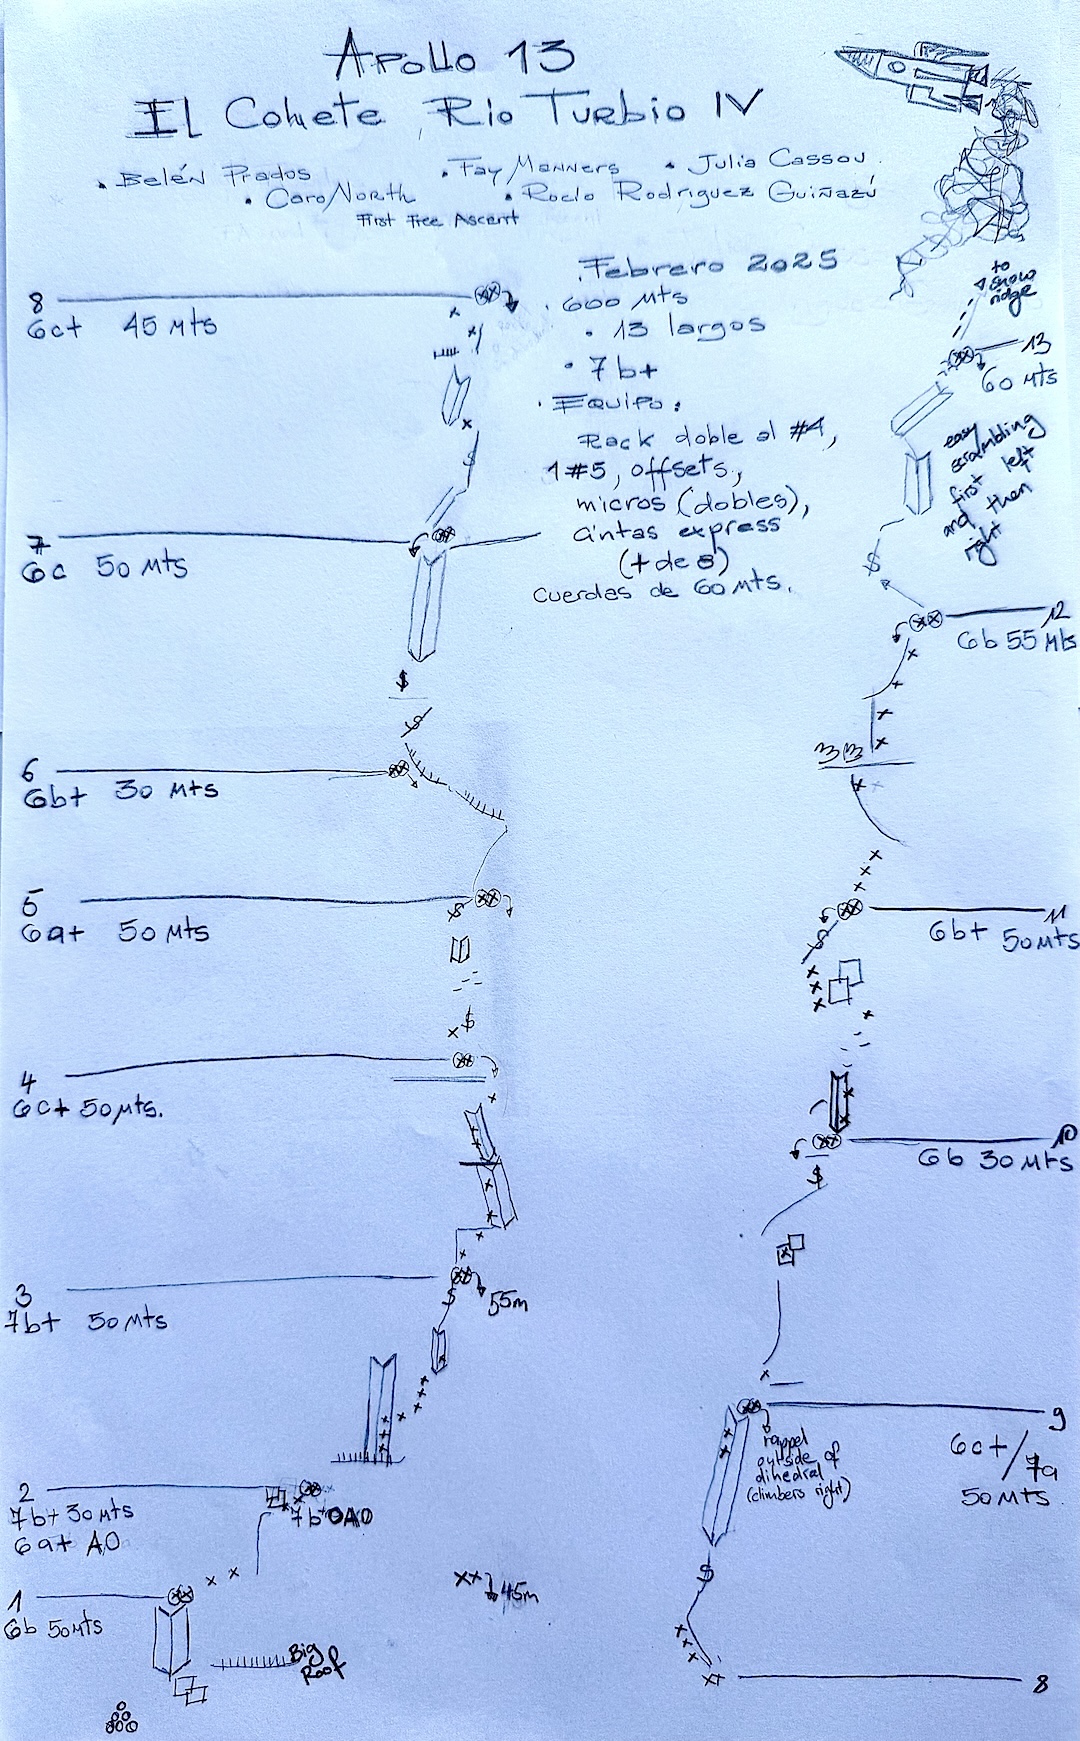 Apollo 13
El Cohete, Rio Turbio IV
• Belén Prados • Fay Manners • Julia Cassou.
• Caro North • Rocío Rodriguez Guiñazú
First Free Ascent
Febrero 2025
• 600 Mts
• 13 largos
• 7b+
• Equipo:
Rack doble al #4,
1#5, offsets,
micros (dobles),
cintas express
(+ de 8)
Cuerdas de 60 Mts.
8
6c+ 45 Mts
7
6c 50 Mts
6
6b+ 30 Mts
5
6a+ 50 Mts
4
6c+ 50 Mts.
3
7b+ 50 Mts
55m
2
7b+ 30 Mts
6a+ A0
7b+ O A0
1
6b 50 Mts
Big
Roof
45m
to
snow
ridge
13
60 Mts
easy
scrambling
first left
and then
right
12
6b 55 Mts
11
6b+ 50 Mts
10
6b 30 Mts
9
6c+/7a
50 Mts
rappel
outside of
dihedral
(climbers right)
8